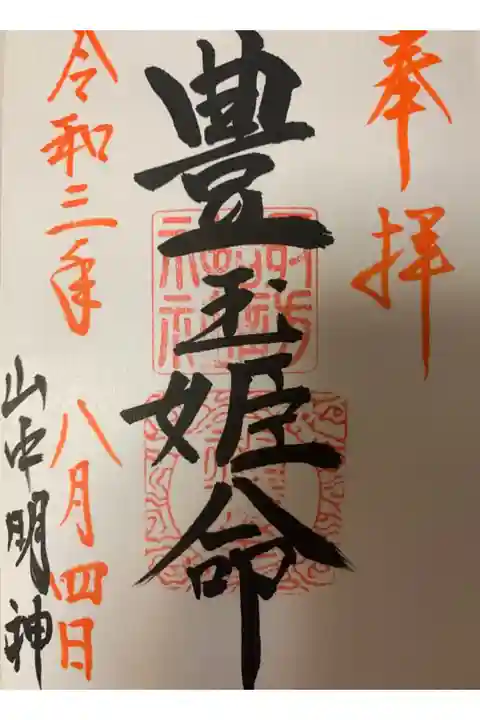 奉拝
豊玉姫命
令和三年
八月四日
山中明神